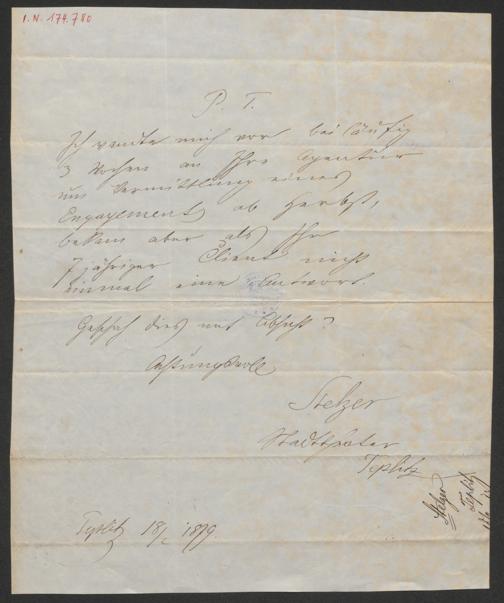 I.N. 174.780
P. T.
Ich wandte mich vor beiläufig
3 Wochen an Ihre Agentur
um Vermittlung eines
Engagement ab Herbst,
bekam aber als Ihr
7 jähriger Client nicht
einmal eine Antwort.
Geschah dies mit Absicht?
Achtungsvoll
Stelzer
Stadttheater
Teplitz
Teplitz 18/ 1879
Stelzer
Teplitz